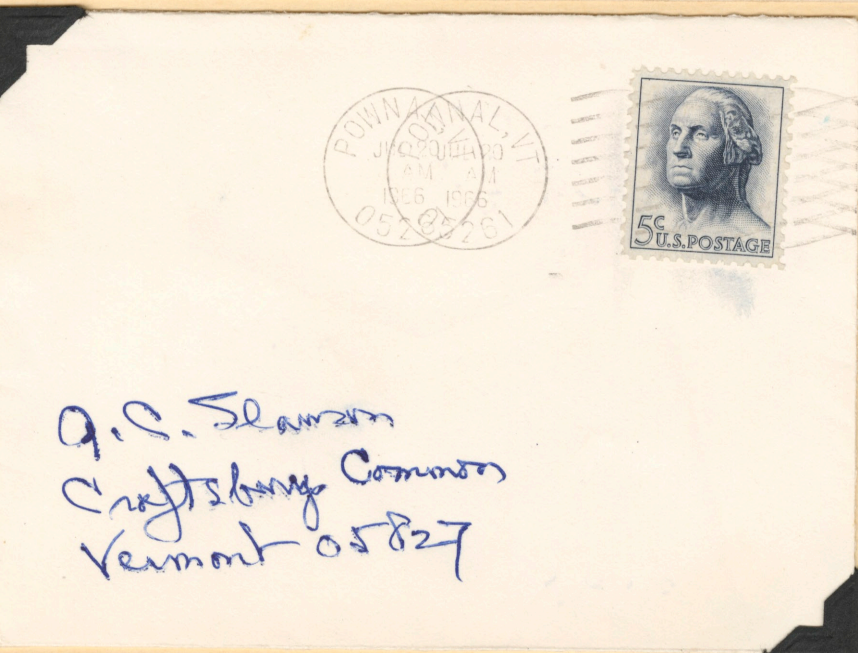 POWNAL, VT
JUL 20
AM
1966
05261
5c
U.S. POSTAGE
A. C. Slamson
Craftsbury Common
Vermont 05827